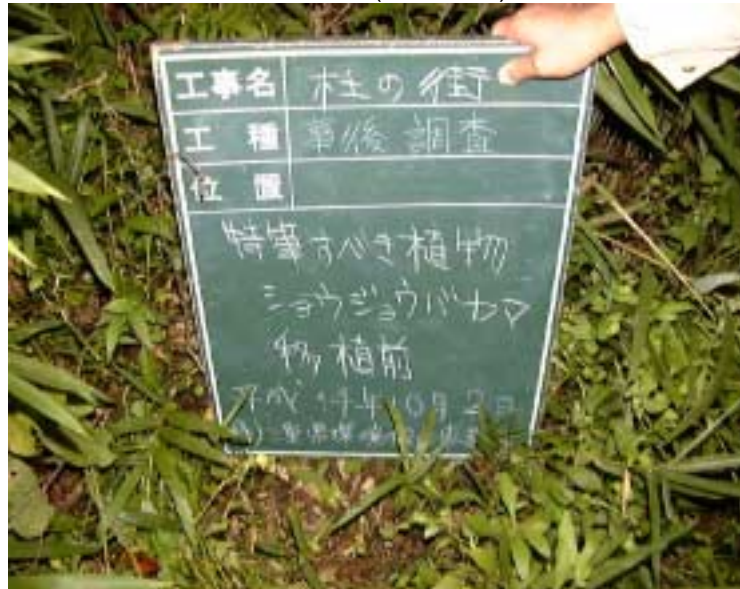 工事名 桂の街
工種 事後調査
位置
特筆すべき植物
ショウジョウバカマ
移植前
平成19年10月2日